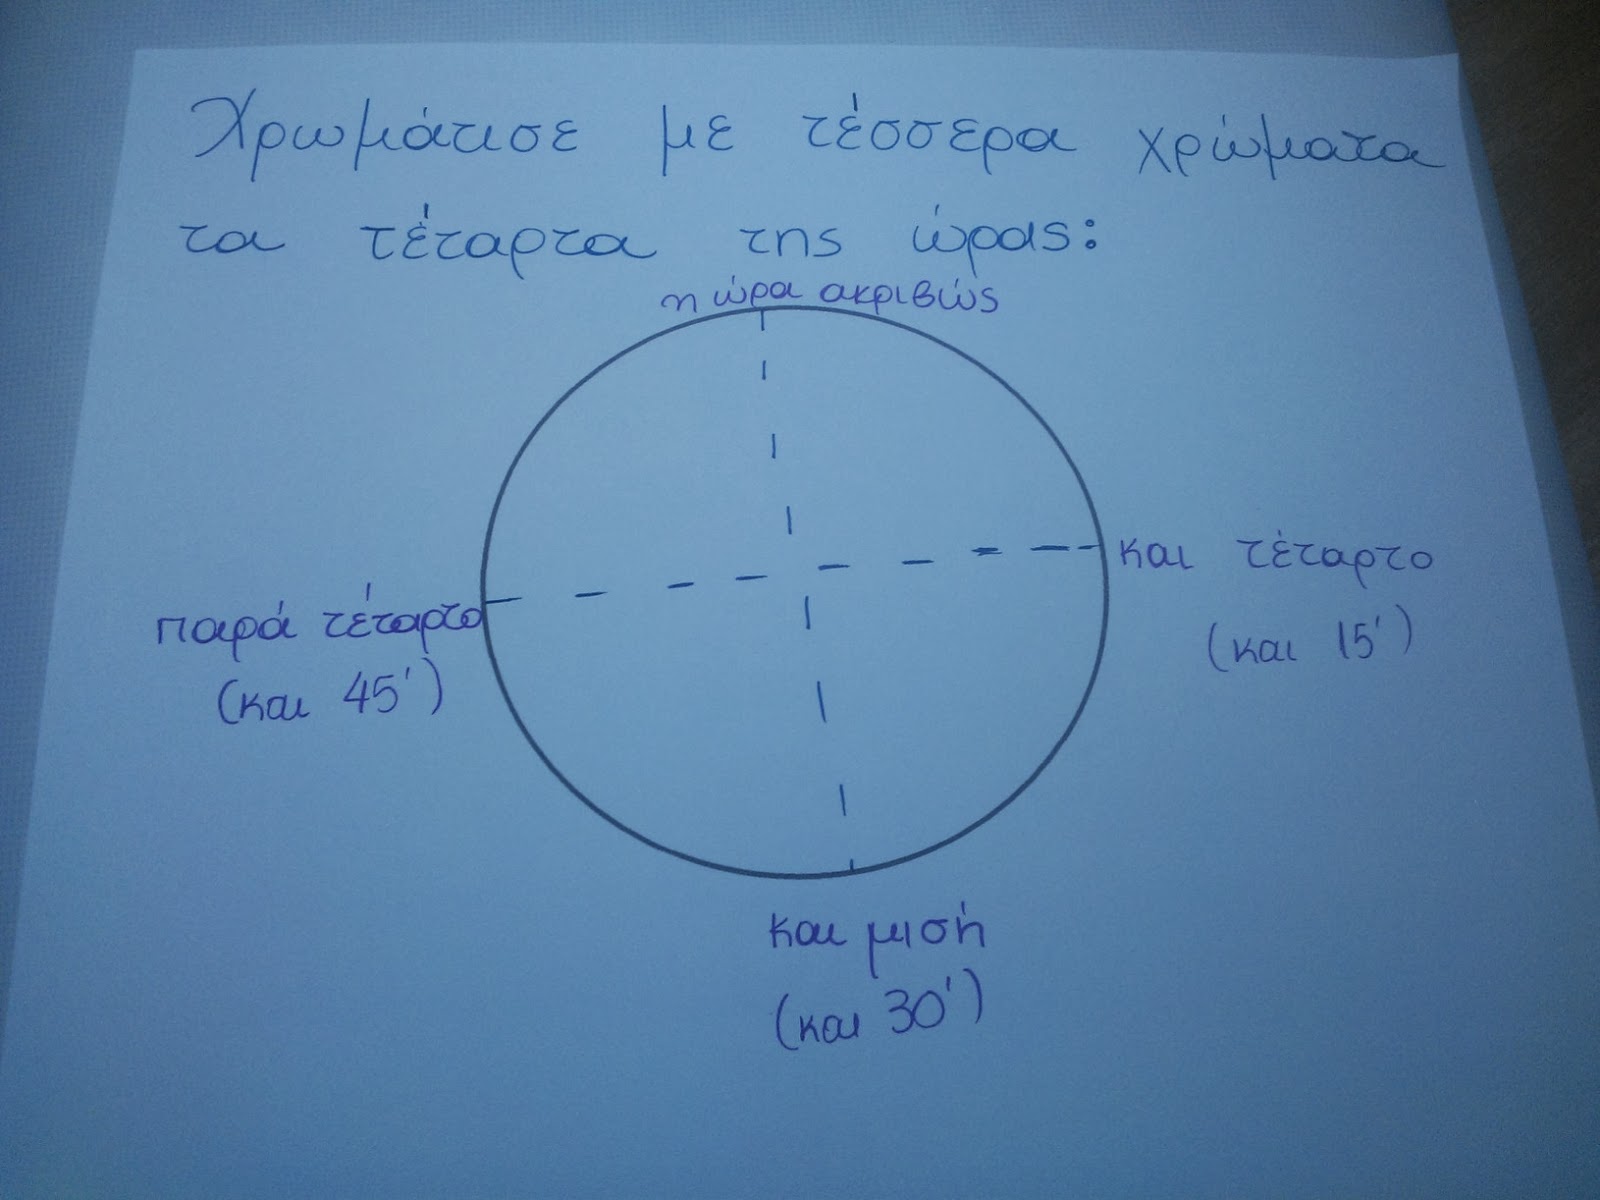 Χρωμάτισε με τέσσερα χρώματα
τα τέταρτα της ώρας:
η ώρα ακριβώς
και τέταρτο
(και 15')
παρά τέταρτο
(και 45')
και μισή
(και 30')